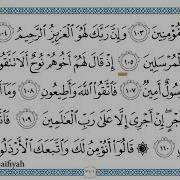 مُّؤْمِنِينَ ١٠٣ وَإِنَّ رَبَّكَ لَهُوَ الْعَزِيزُ الرَّحِيمُ ١٠٤
الْمُرْسَلِينَ ١٠٥ إِذْ قَالَ لَهُمْ أَخُوهُمْ نُوحٌ أَلَا تَتَّقُو
رَسُولٌ أَمِينٌ ١٠٧ فَاتَّقُوا اللَّهَ وَأَطِيعُونِ ١٠٨ وَمَا
جْرٍ إِنْ أَجْرِيَ إِلَّا عَلَىٰ رَبِّ الْعَالَمِينَ ١٠٩ فَاتَّ
١١٠ قَالُوا أَنُؤْمِنُ لَكَ وَاتَّبَعَكَ الْأَرْذَلُو
aifiyah